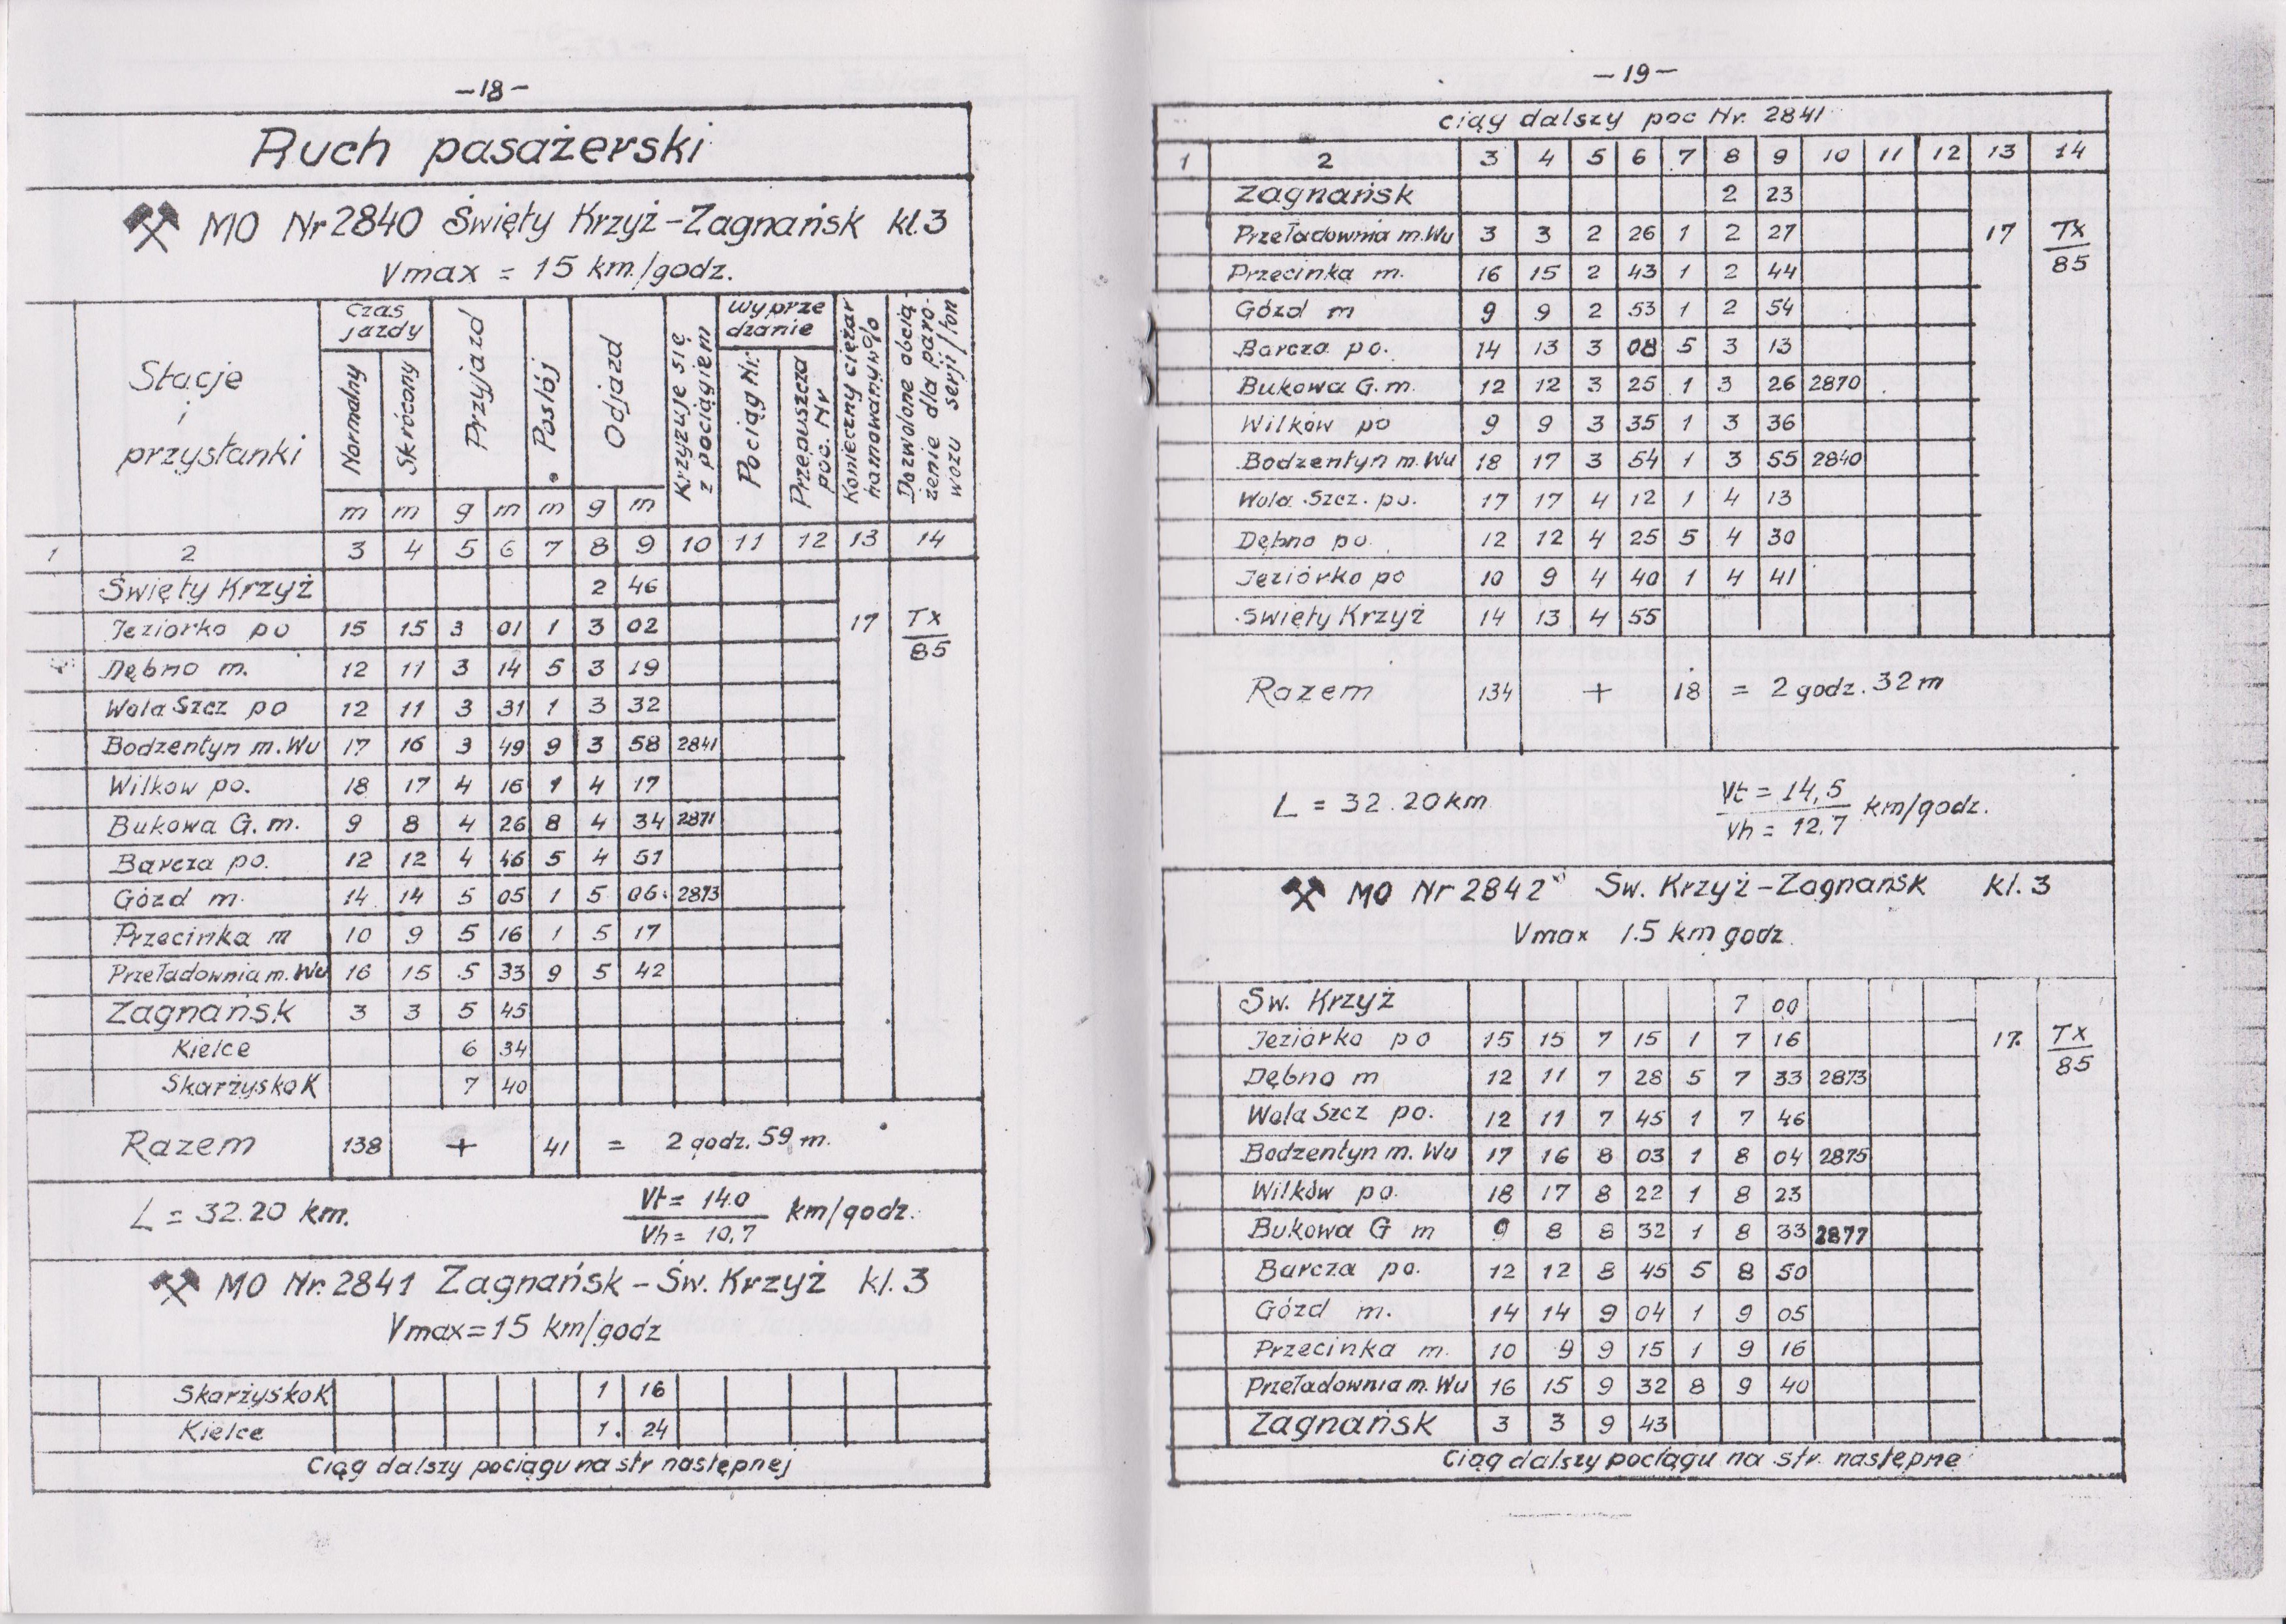 -18-
Ruch pasażerski
MO Nr 2840 Święty Krzyż-Zagnańsk kl.3
Vmax = 15 km./godz.
Stacje i przystanki
Czas jazdy
Normalny
Skrócony
Przyjazd
Postój
Odjazd
Krzyżuje się z pociągiem
Wyprzedzanie
Pociąg Nr.
Przepuszcza poc. Nr
Konieczny ciężar hamowany w %
Dozwolone obciążenie dla parowozu serji/ton
m m g m m g m
1 2 3 4 5 6 7 8 9 10 11 12 13 14
Święty Krzyż 2 46
Jeziorko po 15 15 3 01 1 3 02 17 Tx/85
Dębno m. 12 11 3 14 5 3 19
Wola Szcz po 12 11 3 31 1 3 32
Bodzentyn m. Wu 17 16 3 49 9 3 58 2841
Wilkow po. 18 17 4 16 1 4 17
Bukowa G. m. 9 8 4 26 8 4 34 2871
Barcza po. 12 12 4 46 5 4 51
Gózd m. 14 14 5 05 1 5 06 2873
Przecinka m 10 9 5 16 1 5 17
Przeładownia m. Wu 16 15 5 33 9 5 42
Zagnańsk 3 3 5 45
Kielce 6 34
Skarżysko K 7 40
Razem 138 + 41 = 2 godz. 59 m.
L = 32.20 km. Vt = 14.0 / Vh = 10,7 km/godz.
MO Nr. 2841 Zagnańsk - Św. Krzyż kl. 3
Vmax = 15 km/godz
Skarżysko K 1 16
Kielce 1. 24
Ciąg dalszy pociągu na str następnej
-19-
ciąg dalszy poc Nr. 2841
1 2 3 4 5 6 7 8 9 10 11 12 13 14
Zagnańsk 2 23
Przeładownia m. Wu 3 3 2 26 1 2 27 17 Tx/85
Przecinka m. 16 15 2 43 1 2 44
Gózd m 9 9 2 53 1 2 54
Barcza po. 14 13 3 08 5 3 13
Bukowa G. m. 12 12 3 25 1 3 26 2870
Wilków po 9 9 3 35 1 3 36
Bodzentyn m. Wu 18 17 3 54 1 3 55 2840
Wola Szcz. po. 17 17 4 12 1 4 13
Dębno po. 12 12 4 25 5 4 30
Jeziórko po 10 9 4 40 1 4 41
Święty Krzyż 14 13 4 55
Razem 134 + 18 = 2 godz. 32 m
L = 32.20 km Vt = 14,5 / Vh = 12.7 km/godz.
MO Nr 2842 Sw. Krzyż - Zagnańsk kl. 3
Vmax 1.5 km godz.
Św. Krzyż 7 00
Jeziórko po 15 15 7 15 1 7 16 17. Tx/85
Dębno m 12 11 7 28 5 7 33 2873
Wola Szcz po. 12 11 7 45 1 7 46
Bodzentyn m. Wu 17 16 8 03 1 8 04 2875
Wilków po. 18 17 8 22 1 8 23
Bukowa G m 9 8 8 32 1 8 33 2877
Barcza po. 12 12 8 45 5 8 50
Gózd m. 14 14 9 04 1 9 05
Przecinka m. 10 9 9 15 1 9 16
Przeładownia m. Wu 16 15 9 32 8 9 40
Zagnańsk 3 3 9 43
Ciąg dalszy pociągu na str. następne